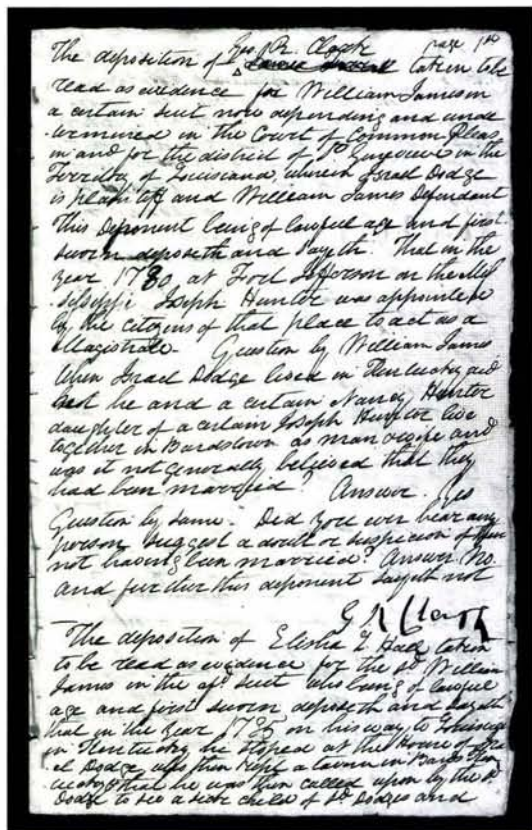 page 1st
The deposition of Geo. R. Clark taken to be
read as evidence for William James in
a certain suit now depending and unde
termined in the Court of Common Pleas
in and for the district of St Genevieve in the
Territory of Louisiana, wherein Israel Dodge
is plaintiff and William James Defendant
This Deponent being of lawful age and first
sworn deposeth and Sayeth. That in the
year 1780 at Fort Jefferson on the Mis
sisippi Joseph Hunter was appointed
by the citizens of that place to act as a
Magistrate. Question by William James
When Israel Dodge lived in Kentucky did
not he and a certain Nancy Hunter
daughter of a certain Joseph Hunter live
together in Bardstown as man & wife and
was it not generally believed that they
had been married? Answer. Yes
Question by same. Did you ever hear any
person suggest a doubt or suspicion of their
not having been married? Answer No.
and further this deponent sayeth not
G R Clark
The deposition of Elisha Hall taken
to be read as evidence for the sd William
James in the afd suit who being of lawful
age and first sworn deposeth and sayeth
that in the year 1785 on his way to
in Kentucky he stoped at the House of Isra
el Dodge who then kept a tavern in Bards Ken
tucky & that he was then called upon by the sd
Dodge to see a sick child of sd Dodges and